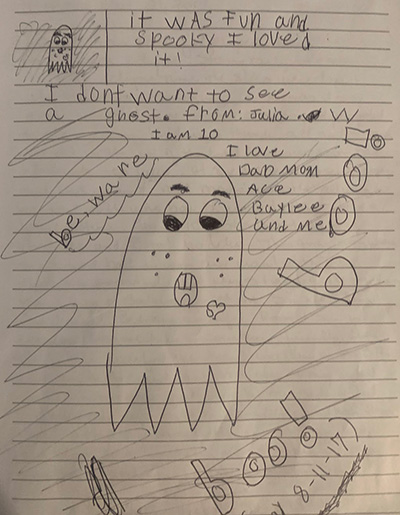 it WAS FUN and
Spooky I loved
it!
I dont want to see
a ghost. from: Julia. W
I am 10
I love
DAD MOM
Ace
Baylee
and me
be ware
8-11-17)